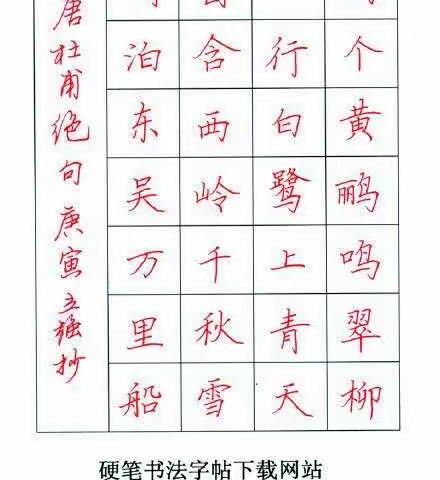 个黄鹂鸣翠柳
行白鹭上青天
含西岭千秋雪
泊东吴万里船
唐杜甫绝句庚寅立强抄
硬笔书法字帖下载网站